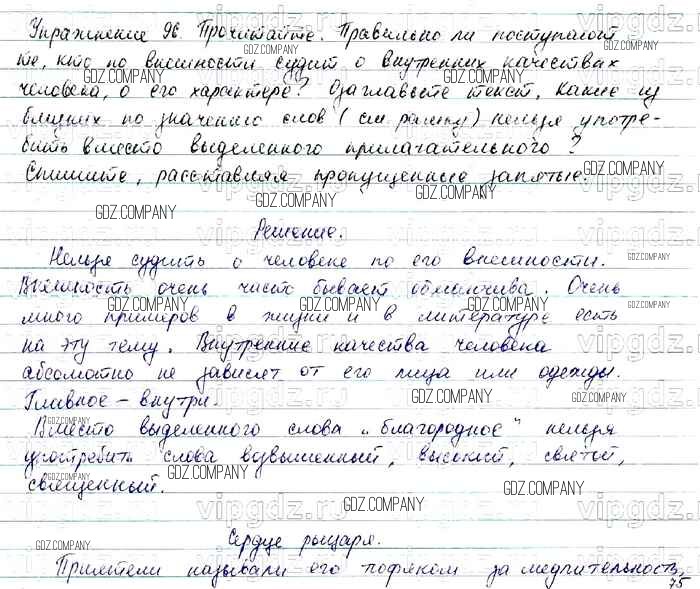 Упражнение 96. Прочитайте. Правильно ли поступают
те, кто по внешности судит о внутренних качествах
человека, о его характере? Озаглавьте текст. Какие из
близких по значению слов (см. рамку) нельзя употре-
бить вместо выделенного прилагательного?
Спишите, расставляя пропущенные запятые.
Решение.
Нельзя судить о человеке по его внешности.
Внешность очень часто бывает обманчива. Очень
много примеров в жизни и в литературе есть
на эту тему. Внутренние качества человека
абсолютно не зависят от его лица или одежды.
Главное – внутри.
Вместо выделенного слова „благородное" нельзя
употребить слова возвышенный, высокий, святой,
священный.
Сердце рыцаря.
Приятели называли его тюфяком за медлительность,
75